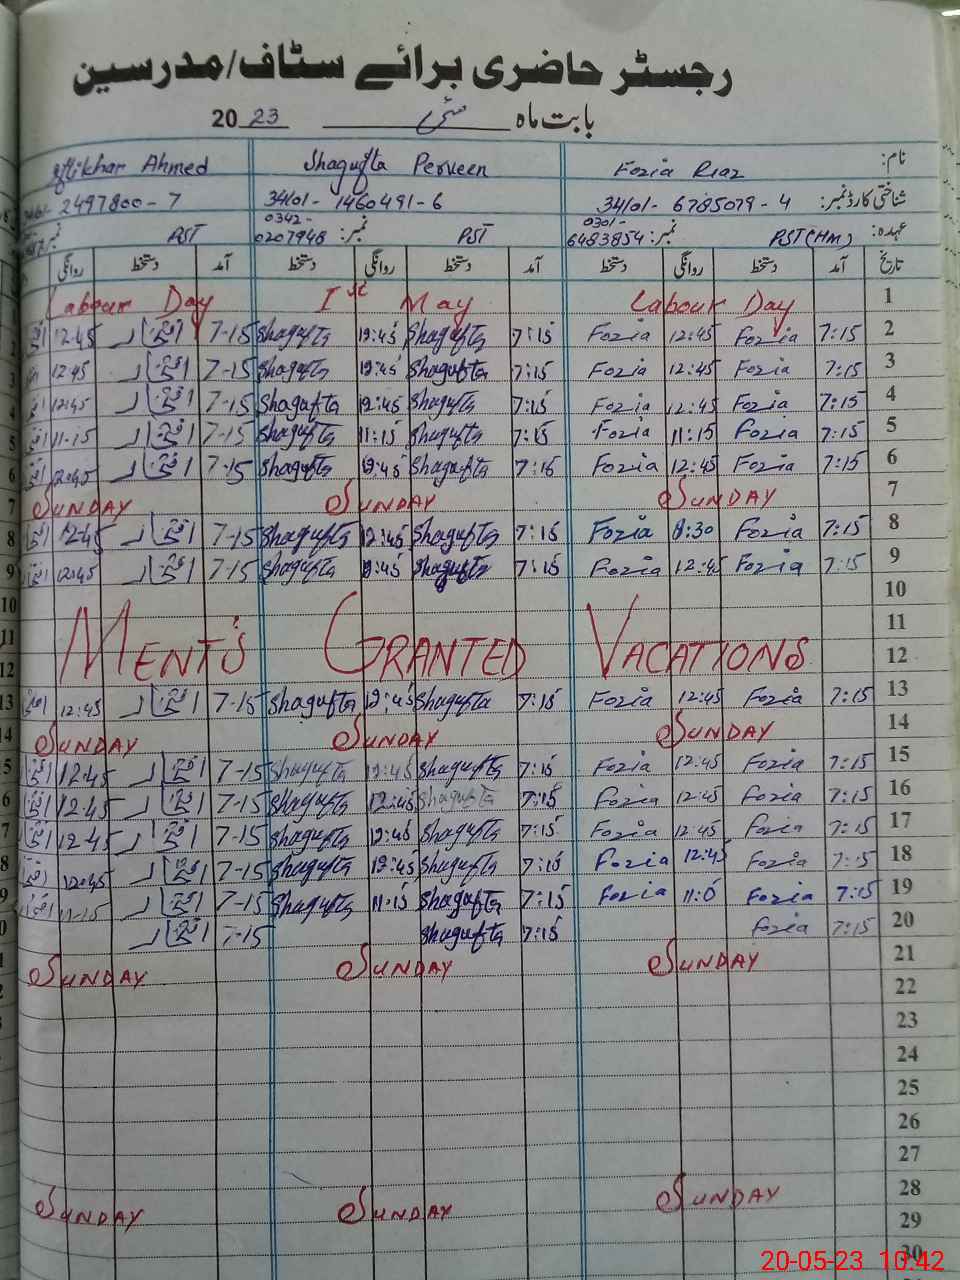 رجسٹر حاضری برائے سٹاف/مدرسین
بابت ماہ مئی 2023
نام: Fozia Riaz Shagufta Perveen Iftikhar Ahmed
شناختی کارڈ نمبر: 34101-6785079-4 34101-1460491-6 2497800-7
عہدہ: PST(HM) نمبر: 0301-6483854 PST نمبر: 0342-0207948 PST نمبر
تاریخ آمد دستخط روانگی دستخط آمد دستخط روانگی دستخط آمد دستخط روانگی
1 Labour Day Ist May Labour Day
2 7:15 Fozia 12:45 Fozia 7:15 Shagufta 12:45 Shagufta 7-15 12-45
3 7:15 Fozia 12:45 Fozia 7:15 Shagufta 12:45 Shagufta 7-15 12-45
4 7:15 Fozia 12:45 Fozia 7:15 Shagufta 12:45 Shagufta 7-15 12-45
5 7:15 Fozia 11:15 Fozia 7:15 Shagufta 11:15 Shagufta 7-15 11-15
6 7:15 Fozia 12:45 Fozia 7:15 Shagufta 12:45 Shagufta 7-15 12-45
7 SUNDAY SUNDAY SUNDAY
8 7:15 Fozia 8:30 Fozia 7:15 Shagufta 12:45 Shagufta 7-15 12-45
9 7:15 Fozia 12:45 Fozia 7:15 Shagufta 12:45 Shagufta 7-15 12-45
10
11
12 MENT'S GRANTED VACATIONS
13 7:15 Fozia 12:45 Fozia 7:15 Shagufta 12:45 Shagufta 7-15 12-45
14 SUNDAY SUNDAY SUNDAY
15 7:15 Fozia 12:45 Fozia 7:15 Shagufta 12:45 Shagufta 7-15 12-45
16 7:15 Fozia 12:45 Fozia 7:15 Shagufta 12:45 Shagufta 7-15 12-45
17 7:15 Fozia 12:45 Fozia 7:15 Shagufta 12:45 Shagufta 7-15 12-45
18 7:15 Fozia 12:45 Fozia 7:15 Shagufta 12:45 Shagufta 7-15 12-45
19 7:15 Fozia Fozia 7:15 Shagufta 11:15 Shagufta 7-15 11-15
20 7:15 Fozia 7:15 Shagufta 7-15
21 SUNDAY SUNDAY SUNDAY
22
23
24
25
26
27
28 SUNDAY SUNDAY SUNDAY
29
30
20-05-23 10:42